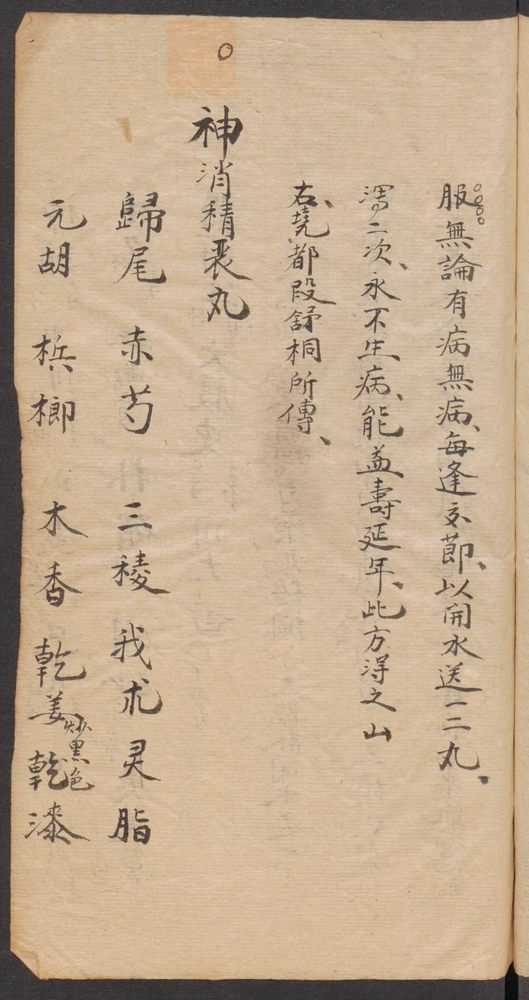 服無論有病無病、每逢交節、以開水送一二丸、
瀉二次、永不生病、能益壽延年、此方得之山
右堯都段舒桐所傳、
神消積聚丸
歸尾 赤芍 三稜 我朮 灵脂
元胡 梹榔 木香 乾姜炒黑色 乾漆